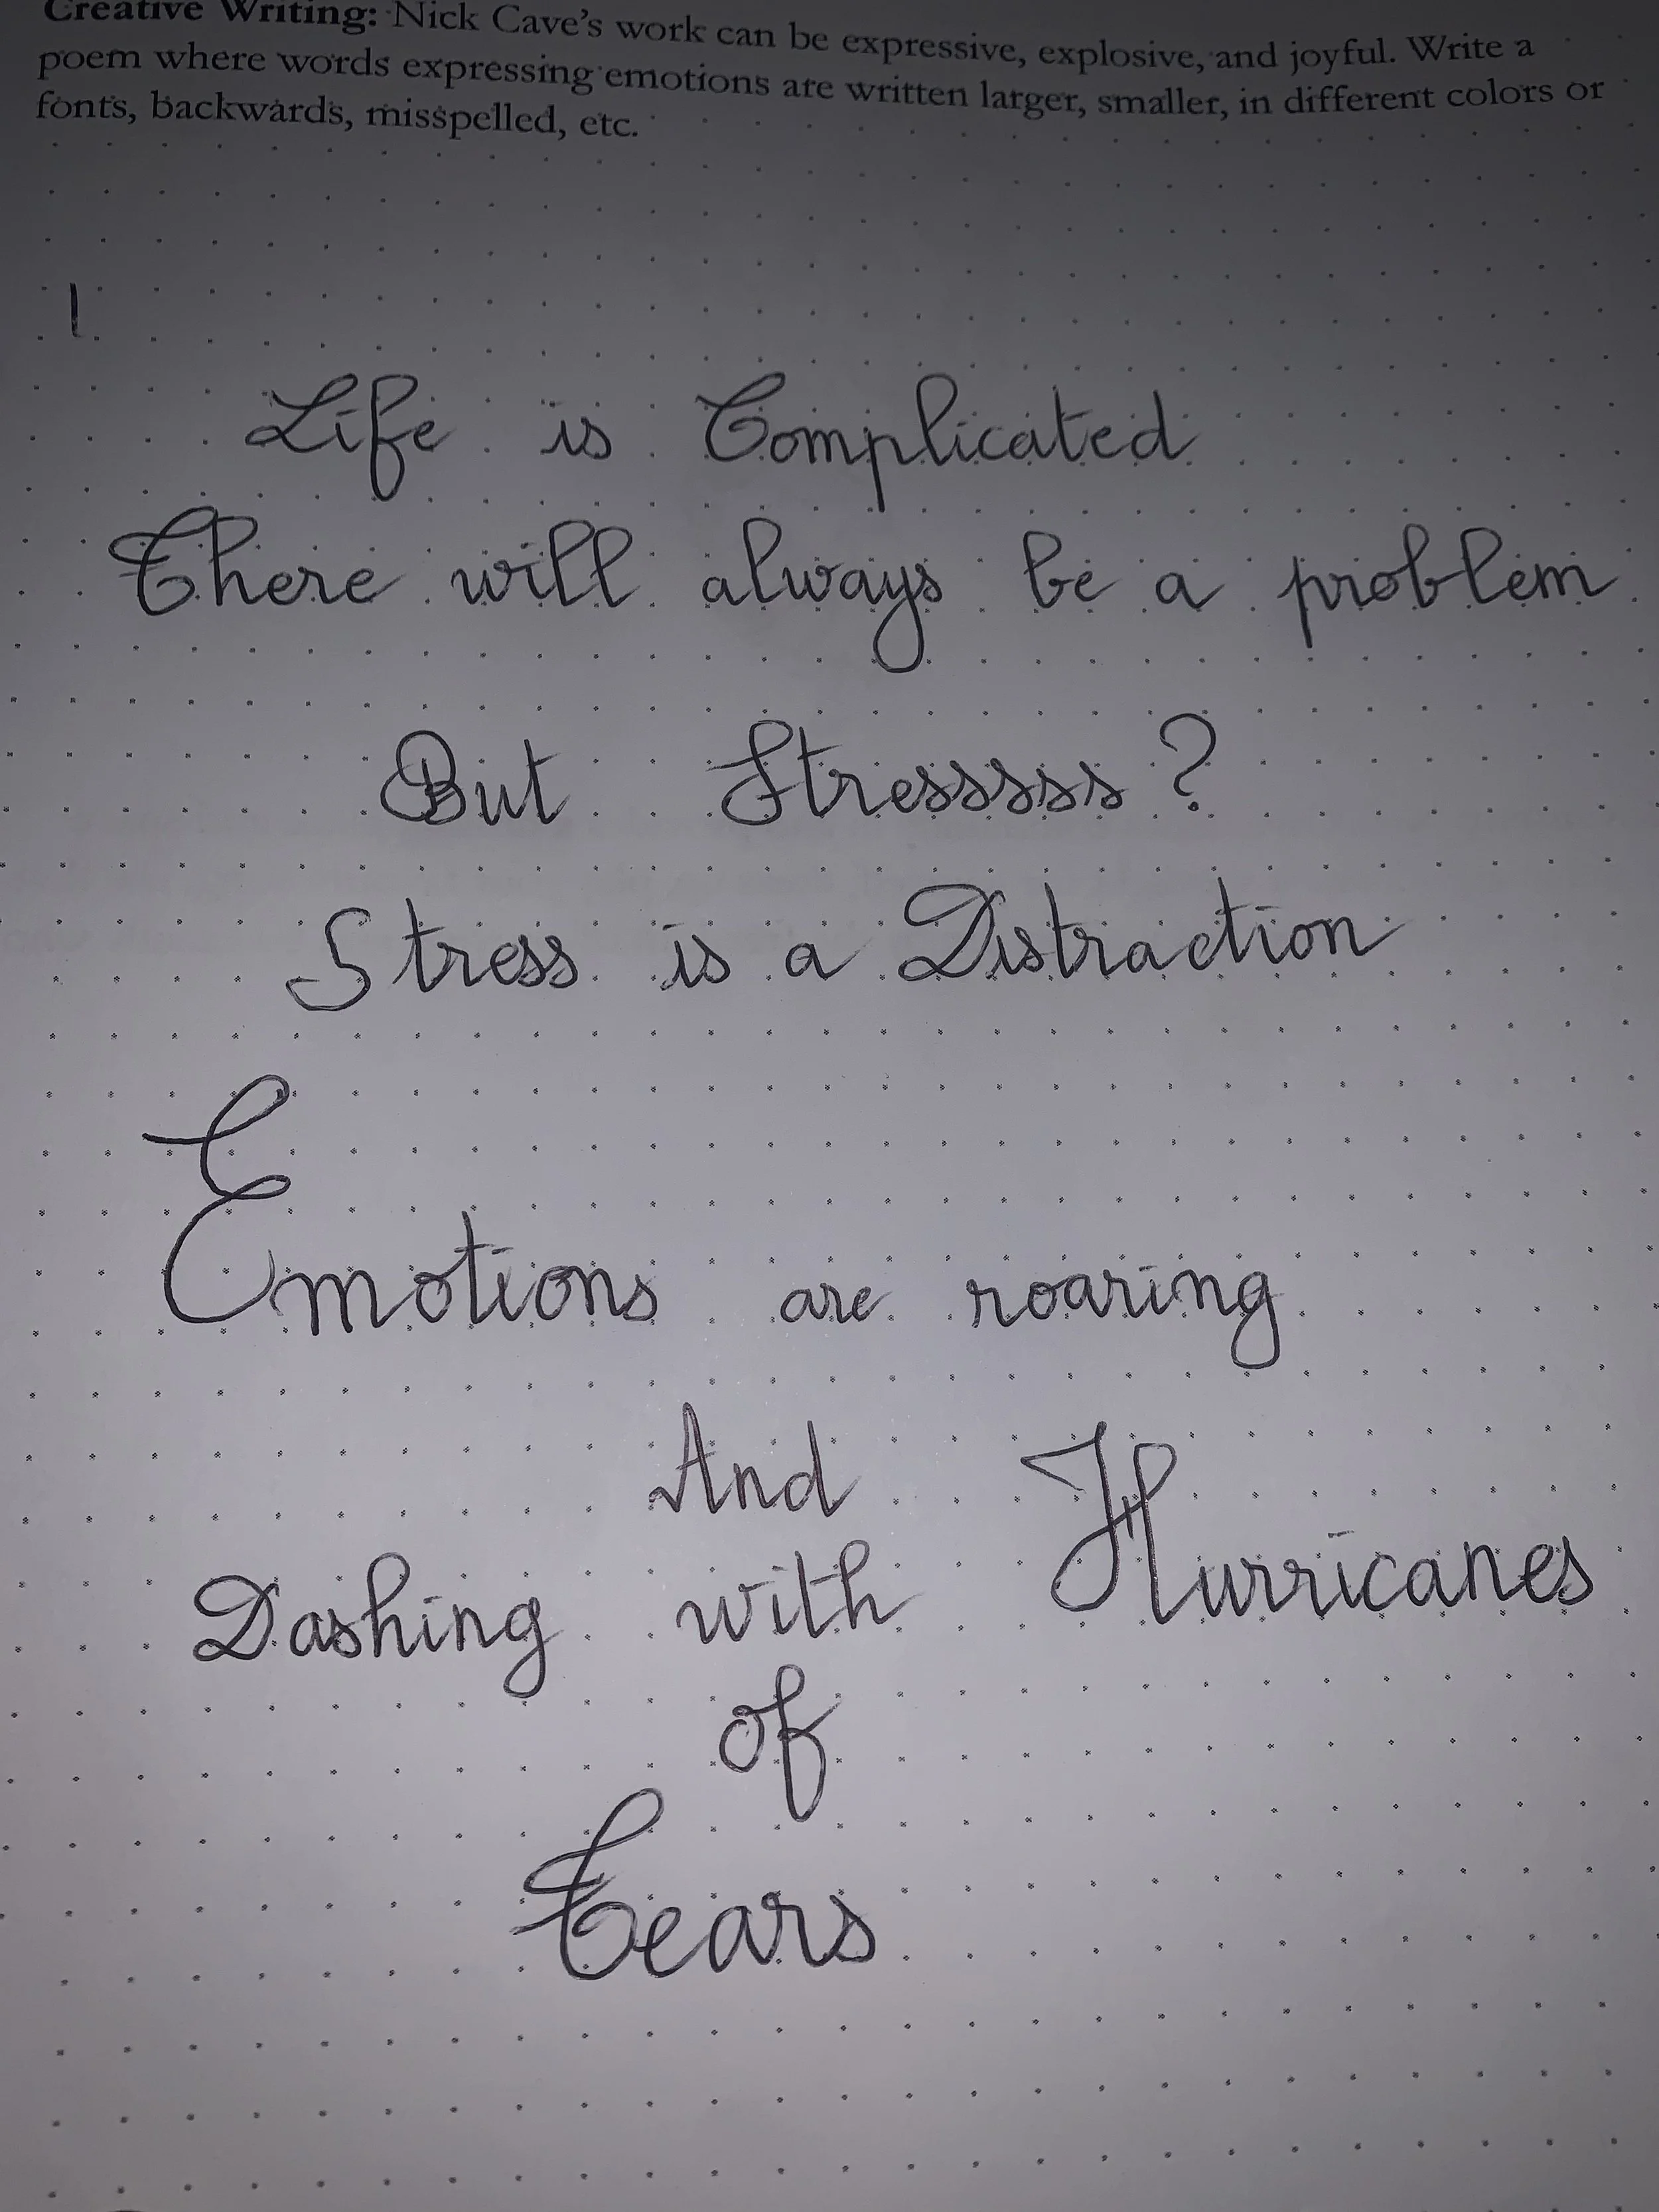 Creative Writing: Nick Cave's work can be expressive, explosive, and joyful. Write a
poem where words expressing emotions are written larger, smaller, in different colors or
fonts, backwards, misspelled, etc.
1.
Life is Complicated
There will always be a problem
But Stresssss?
Stress is a Distraction
Emotions are roaring
And
Dashing with Hurricanes
of
Tears